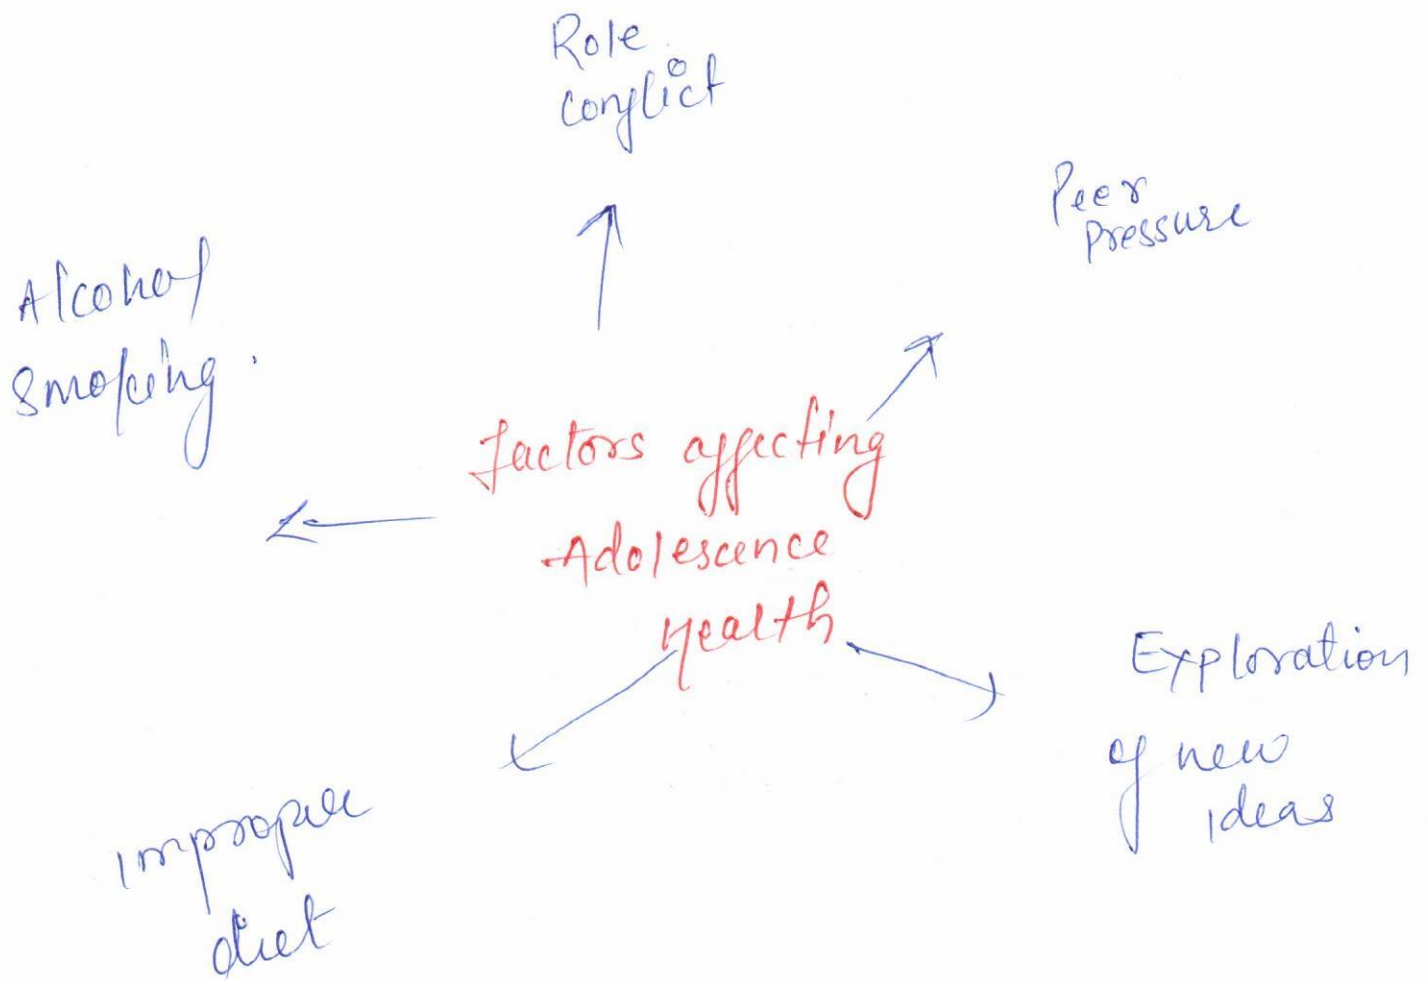 Role
conflict
Peer
Pressure
Alcohol
Smoking.
Factors affecting
Adolescence
Health
Exploration
of new
ideas
Improper
diet